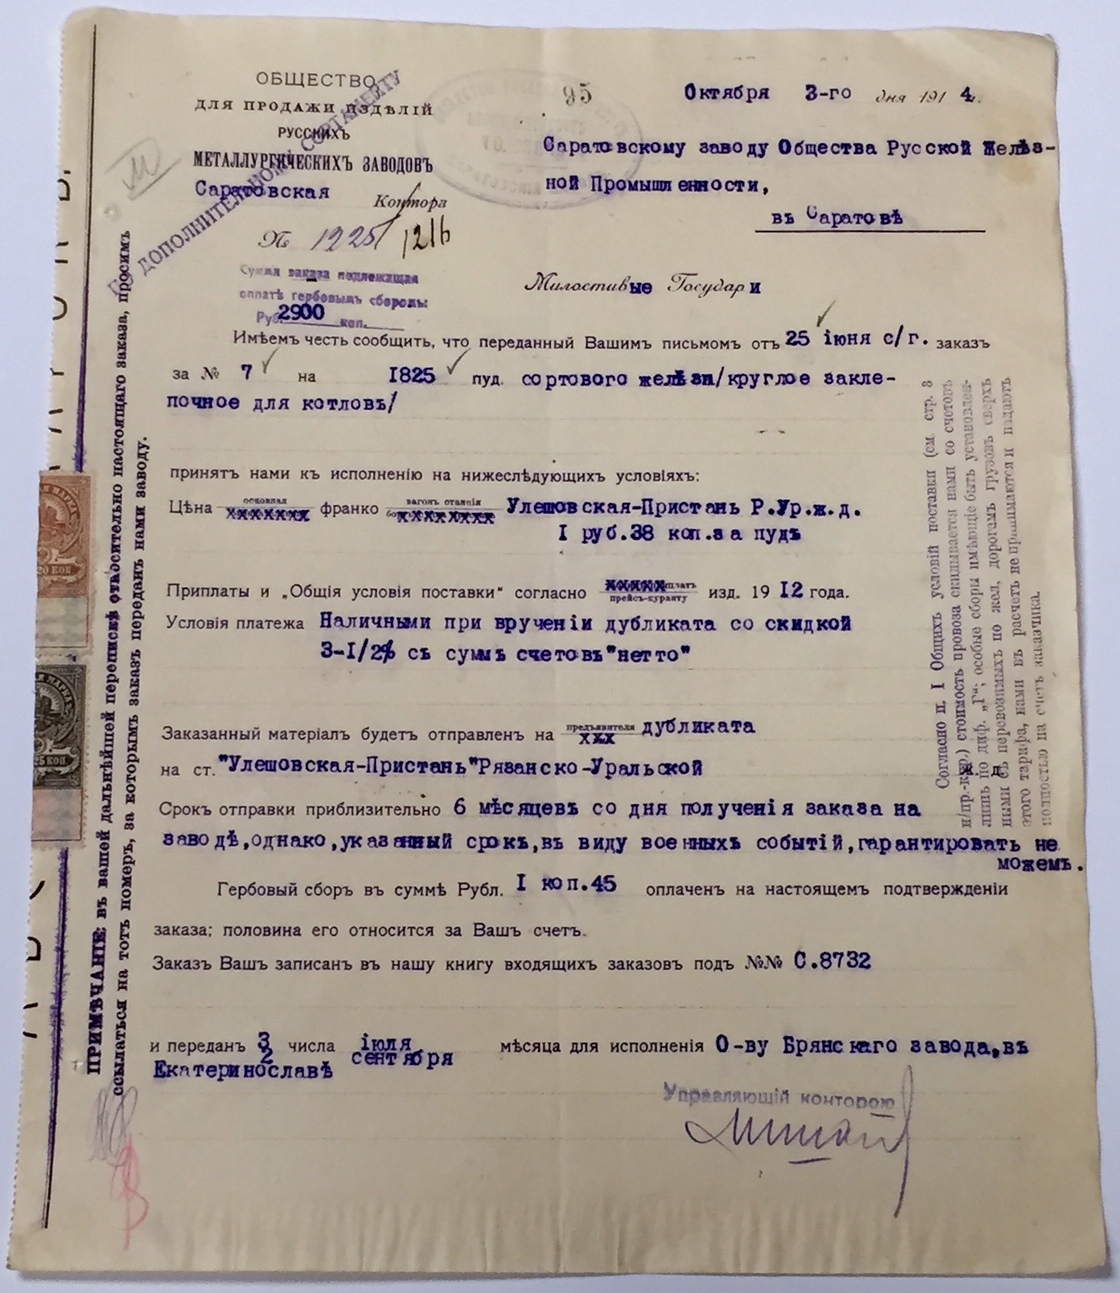 ОБЩЕСТВО
ДЛЯ ПРОДАЖИ ИЗДѢЛІЙ
РУССКИХЪ
МЕТАЛЛУРГИЧЕСКИХЪ ЗАВОДОВЪ
Саратовская Контора
№ 1225/1216
ДОПОЛНИТЕЛЬНОМУ СОРТАМЕНТУ
95
Октября 3-го дня 1914 г.
Саратовскому заводу Общества Русской Желѣз-
ной Промышленности,
въ Саратовѣ
Сумма заказа подлежащая
оплатѣ гербовымъ сборомъ
Руб. 2900 коп.
Милостивые Государи
Имѣемъ честь сообщить, что переданный Вашимъ письмомъ отъ 25 іюня с/г. заказъ
за № 7 на 1825 пуд. сортового желѣза/круглое закле-
почное для котловъ/
принятъ нами къ исполненію на нижеслѣдующихъ условіяхъ:
Цѣна основная франко вагонъ станція Улешовская-Пристань Р.Ур.ж.д.
I руб.38 коп.за пудъ
Приплаты и „Общія условія поставки" согласно прейсъ-куранту изд. 1912 года.
Условія платежа Наличными при врученіи дубликата со скидкой
3-I/2% съ суммъ счетовъ"нетто"
Заказанный матеріалъ будетъ отправленъ на предъявителя дубликата
на ст."Улешовская-Пристань"Рязанско-Уральской ж. д.
Срокъ отправки приблизительно 6 мѣсяцевъ со дня полученія заказа на
заводѣ,однако,указанный срокъ,въ виду военныхъ событій,гарантировать не
можемъ.
Гербовый сборъ въ суммѣ Рубл. I коп.45 оплаченъ на настоящемъ подтвержденіи
заказа; половина его относится за Вашъ счетъ.
Заказъ Вашъ записанъ въ нашу книгу входящихъ заказовъ подъ №№ С.8732
и переданъ 3 числа іюля мѣсяца для исполненія О-ву Брянскаго завода,въ
2 сентября
Екатеринославѣ
Управляющій конторою
ПРИМѢЧАНІЕ: въ вашей дальнѣйшей перепискѣ относительно настоящаго заказа, просимъ
ссылаться на тотъ номеръ, за которымъ заказъ переданъ нами заводу.
Согласно п. I Общихъ условій поставки (см. стр. 3
н/пр.-кур.) стоимость провоза скидывается нами со счетовъ
лишь по диф. „Г"; особые сборы имѣющіе быть установлен-
ными съ перевозимыхъ по жел. дорогамъ грузовъ сверхъ
этого тарифа, нами въ расчетъ не принимаются и падаютъ
полностью на счетъ заказчика.